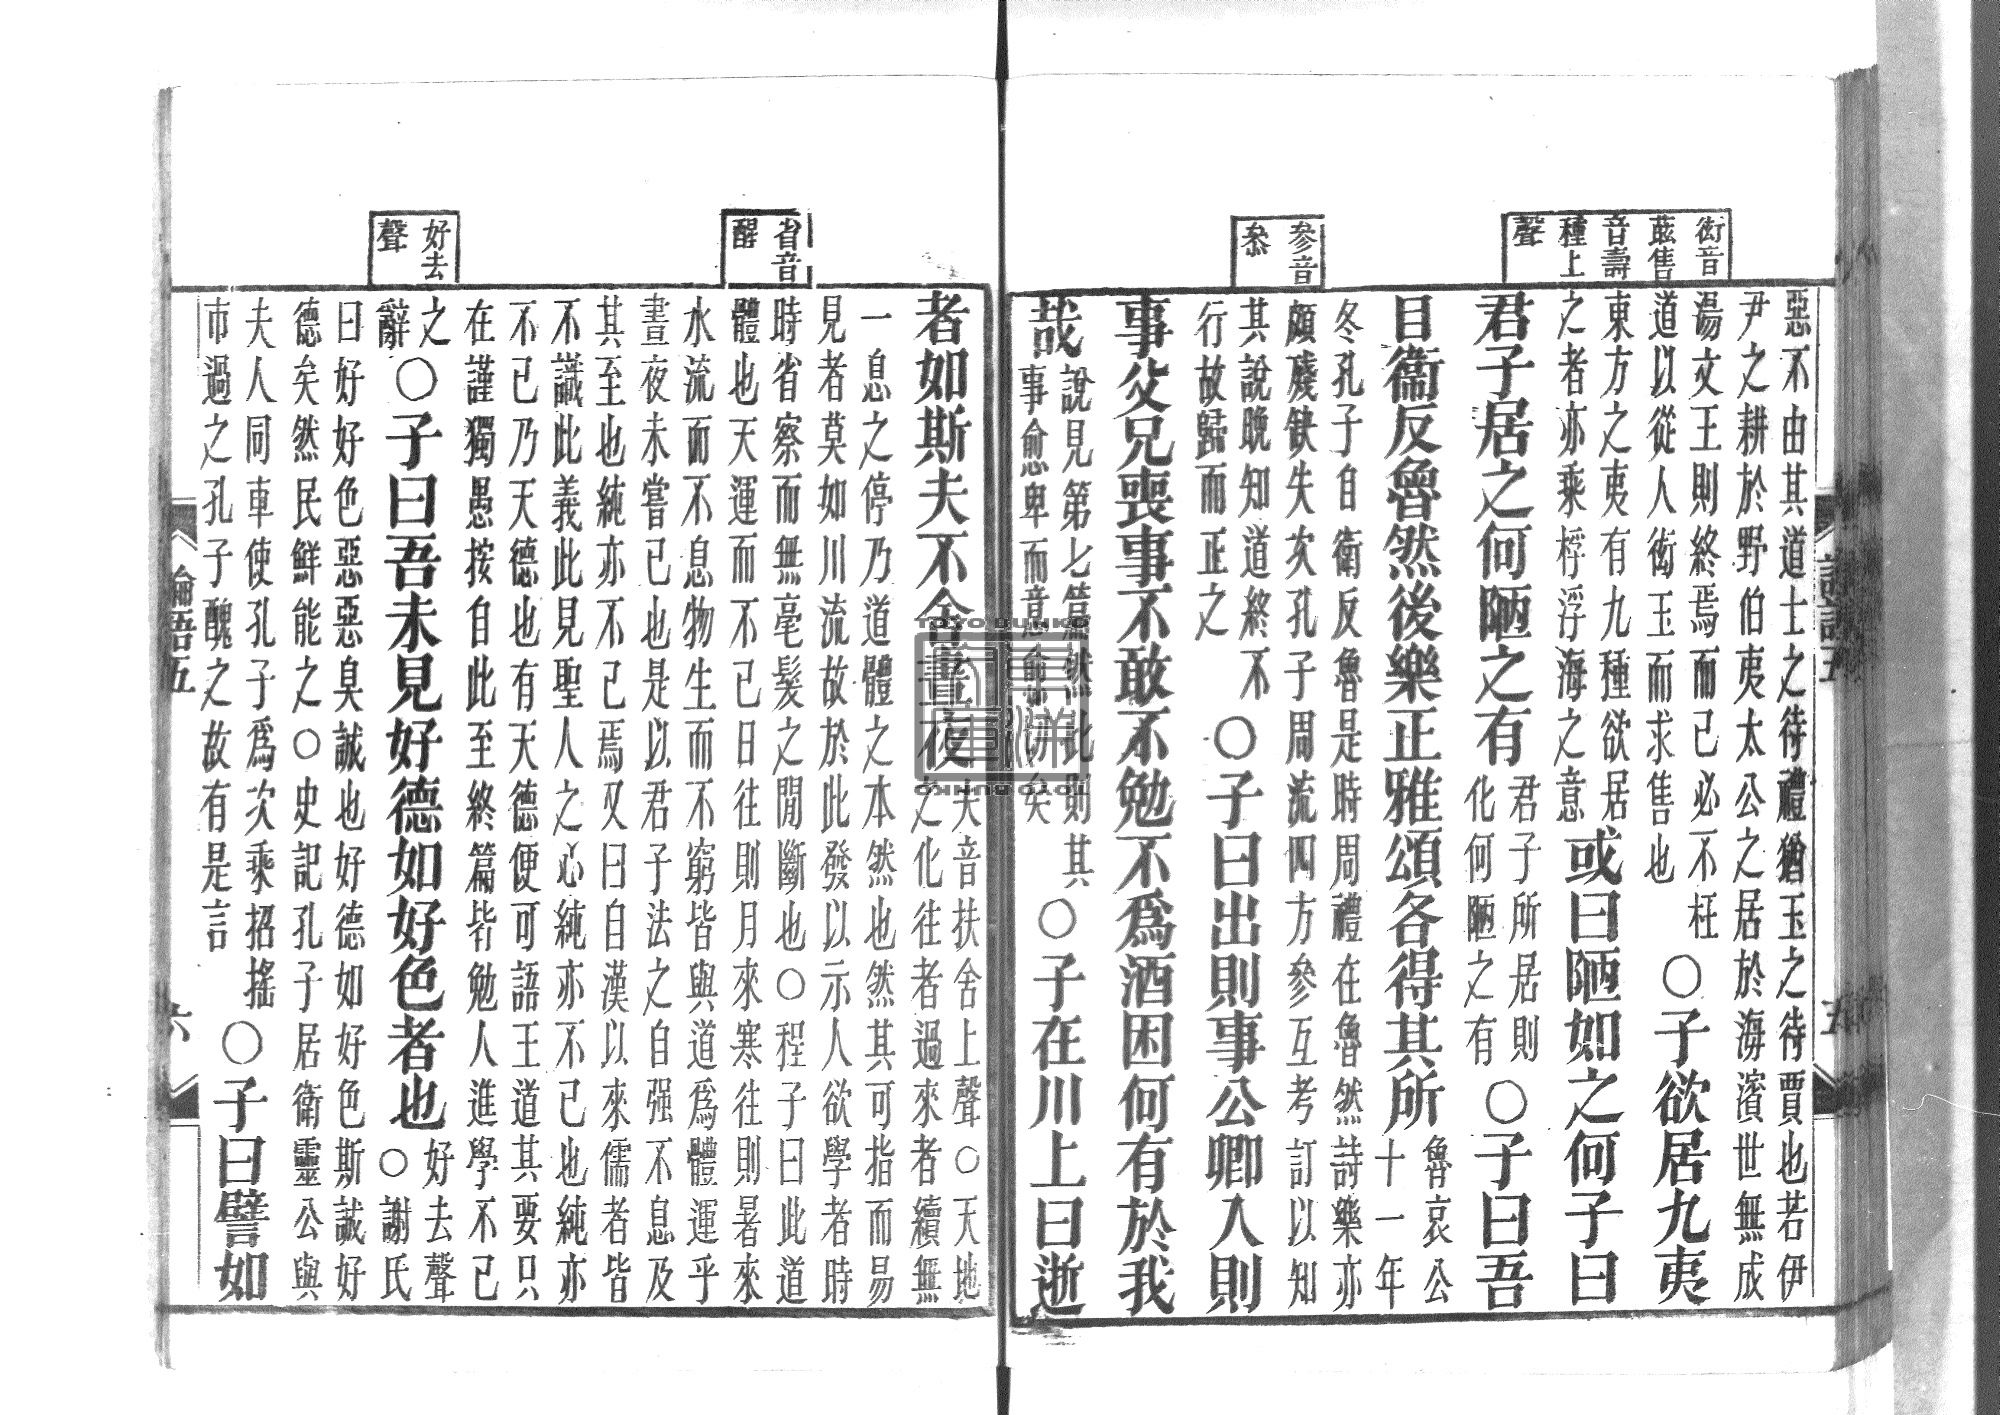 衒音
玆售
音壽
種上
聲
參音
叅
惡不由其道士之待禮猶玉之待賈也若伊
尹之耕於野伯夷太公之居於海濱世無成
湯文王則終焉而已必不枉
道以從人衒玉而求售也
○子欲居九夷
東方之夷有九種欲居
之者亦乘桴浮海之意
或曰陋如之何子曰
君子居之何陋之有
君子所居則
化何陋之有
○子曰吾
自衞反魯然後樂正雅頌各得其所
魯哀公
十一年
冬孔子自衛反魯是時周禮在魯然詩樂亦
頗殘缺失次孔子周流四方參互考訂以知
其說晚知道終不
行故歸而正之
○子曰出則事公卿入則
事父兄喪事不敢不勉不爲酒困何有於我
哉
說見第七篇然此則其
事愈卑而意愈切矣
○子在川上曰逝
論語五
五
省音
醒
好去
聲
者如斯夫不舍晝夜
夫音扶舍上聲○天地
之化往者過來者續無
一息之停乃道體之本然也然其可指而易
見者莫如川流故於此發以示人欲學者時
時省察而無毫髮之閒斷也○程子曰此道
體也天運而不已日往則月來寒往則暑來
水流而不息物生而不窮皆與道爲體運乎
晝夜未嘗已也是以君子法之自强不息及
其至也純亦不已焉又曰自漢以來儒者皆
不識此義此見聖人之心純亦不已也純亦
不已乃天德也有天德便可語王道其要只
在謹獨愚按自此至終篇皆勉人進學不已
之
辭
○子曰吾未見好德如好色者也
好去聲
○謝氏
曰好好色惡惡臭誠也好德如好色斯誠好
德矣然民鮮能之○史記孔子居衛靈公與
夫人同車使孔子爲次乘招搖
市過之孔子醜之故有是言
○子曰譬如
論語五
六
TOYO BUNKO
東洋文庫
TOYO BUNKO